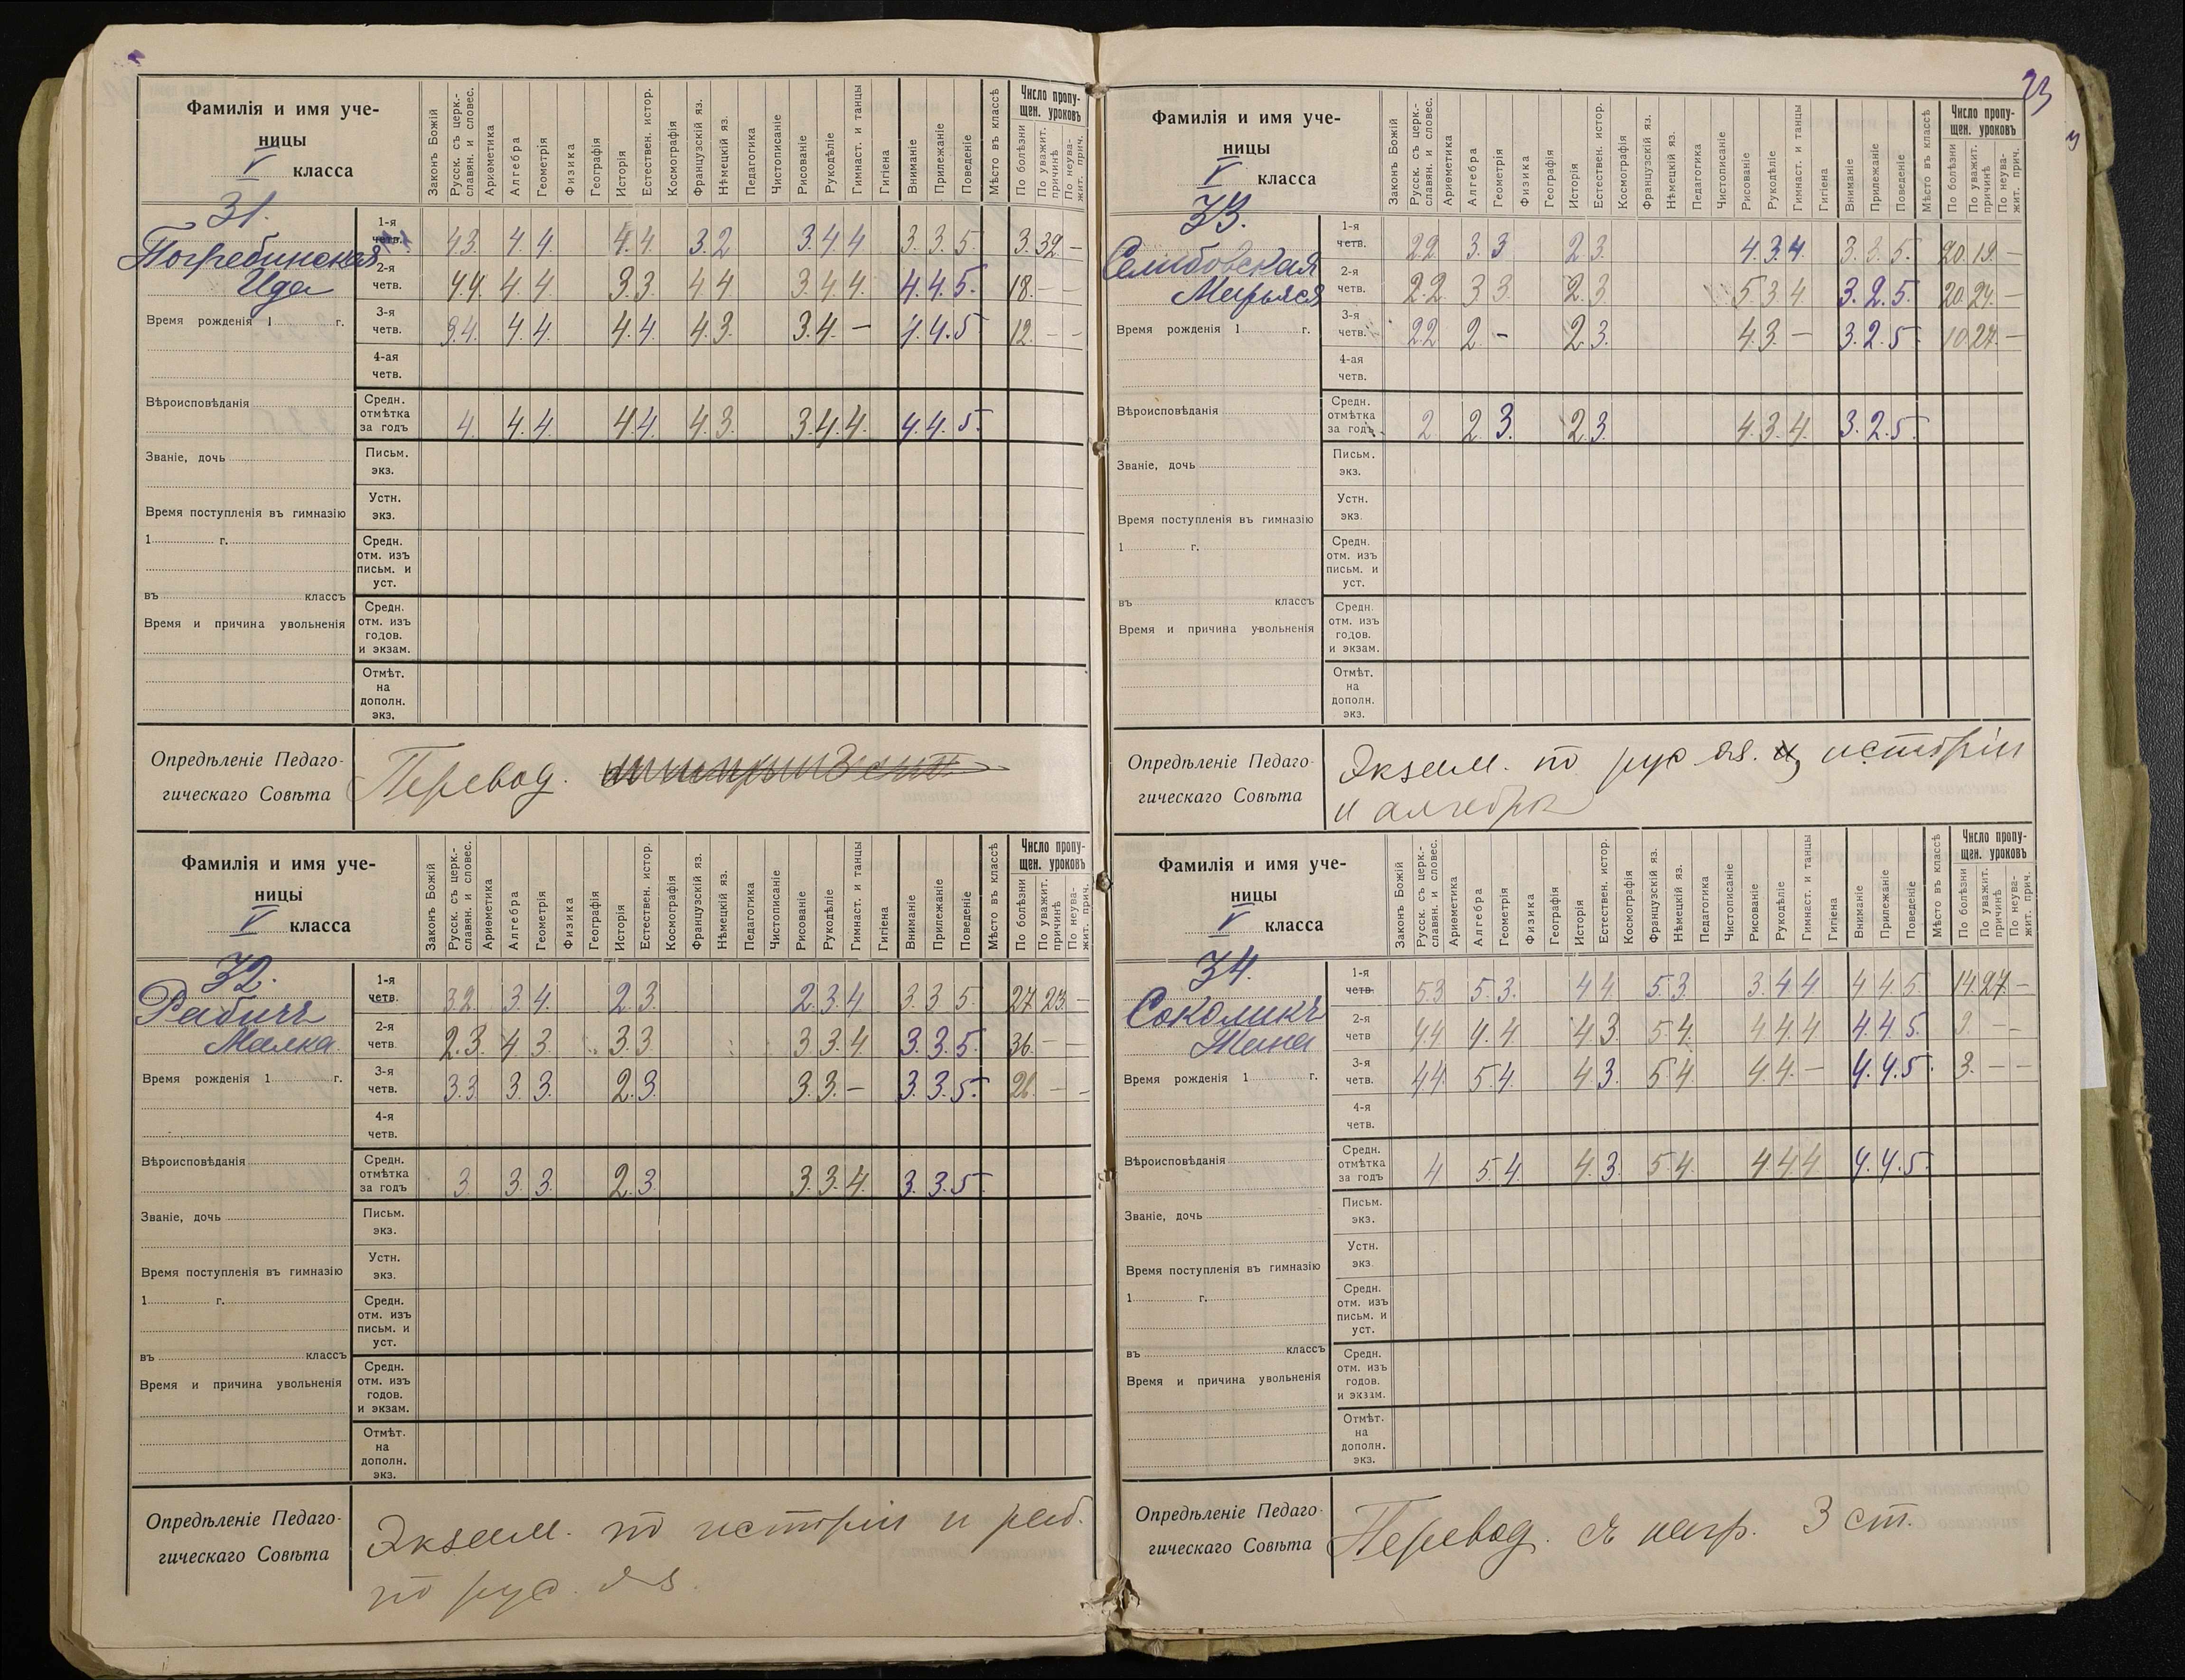 23
Фамилія и имя уче-
ницы
V класса
31.
Погребинская
Ида
Время рожденія 1 г.
Вѣроисповѣданія
Званіе, дочь
Время поступленія въ гимназію
1 г.
въ классъ
Время и причина увольненія
Законъ Божій
Русск. съ церк.-славян. и словес.
Ариѳметика
Алгебра
Геометрія
Физика
Географія
Исторія
Естествен. истор.
Космографія
Французскій яз.
Нѣмецкій яз.
Педагогика
Чистописаніе
Рисованіе
Рукодѣліе
Гимнаст. и танцы
Гигіена
Вниманіе
Прилежаніе
Поведеніе
Мѣсто въ классѣ
Число пропу-
щен. уроковъ
По болѣзни
По уважит. причинѣ
По неува-жит. прич.
1-я четв. 4.3. 4. 4. 4. 4 3. 2 3. 4 4 3. 3. 5. 3. 32. —
2-я четв. 4.4. 4. 4. 3. 3. 4 4 3. 4 4. 4. 4. 5. 18. — —
3-я четв. 3.4. 4. 4. 4. 4. 4. 3. 3. 4. — 4. 4. 5 12. — —
4-ая четв.
Средн. отмѣтка за годъ 4. 4. 4. 4. 4. 4. 3. 3. 4. 4. 4. 4. 5.
Письм. экз.
Устн. экз.
Средн. отм. изъ письм. и уст.
Средн. отм. изъ годов. и экзам.
Отмѣт. на дополн. экз.
Опредѣленіе Педаго-
гическаго Совѣта
Перевод.
Фамилія и имя уче-
ницы
V класса
32.
Рабичъ
Малка
Время рожденія 1 г.
Вѣроисповѣданія
Званіе, дочь
Время поступленія въ гимназію
1 г.
въ классъ
Время и причина увольненія
Законъ Божій
Русск. съ церк.-славян. и словес.
Ариѳметика
Алгебра
Геометрія
Физика
Географія
Исторія
Естествен. истор.
Космографія
Французскій яз.
Нѣмецкій яз.
Педагогика
Чистописаніе
Рисованіе
Рукодѣліе
Гимнаст. и танцы
Гигіена
Вниманіе
Прилежаніе
Поведеніе
Мѣсто въ классѣ
Число пропу-
щен. уроковъ
По болѣзни
По уважит. причинѣ
По неува-жит. прич.
1-я четв. 3.2. 3. 4. 2. 3. 2. 3. 4 3. 3 5. 27. 23. —
2-я четв. 2.3. 4 3. 3. 3. 3. 3. 4. 3. 3. 5. 36. — —
3-я четв. 3.3. 3. 3. 2. 3. 3. 3. — 3. 3. 5. 26. — —
4-я четв.
Средн. отмѣтка за годъ 3. 3. 3. 2. 3. 3. 3. 4. 3. 3. 5.
Письм. экз.
Устн. экз.
Средн. отм. изъ письм. и уст.
Средн. отм. изъ годов. и экзам.
Отмѣт. на дополн. экз.
Опредѣленіе Педаго-
гическаго Совѣта
Экзам. по исторіи и раб.
по рус. яз.
Фамилія и имя уче-
ницы
V класса
33.
Селибовская
Марьяся
Время рожденія 1 г.
Вѣроисповѣданія
Званіе, дочь
Время поступленія въ гимназію
1 г.
въ классъ
Время и причина увольненія
Законъ Божій
Русск. съ церк.-славян. и словес.
Ариѳметика
Алгебра
Геометрія
Физика
Географія
Исторія
Естествен. истор.
Космографія
Французскій яз.
Нѣмецкій яз.
Педагогика
Чистописаніе
Рисованіе
Рукодѣліе
Гимнаст. и танцы
Гигіена
Вниманіе
Прилежаніе
Поведеніе
Мѣсто въ классѣ
Число пропу-
щен. уроковъ
По болѣзни
По уважит. причинѣ
По неува-жит. прич.
1-я четв. 2.2. 3. 3 2 3. 4. 3. 4. 3. 3. 5. 20. 19. —
2-я четв. 2.2. 3 3. 2. 3. 5. 3. 4 3. 2. 5. 20. 24. —
3-я четв. 2.2 2. — 2. 3. 4. 3. — 3. 2. 5. 10. 27. —
4-ая четв.
Средн. отмѣтка за годъ 2. 2. 3. 2. 3. 4. 3. 4. 3. 2. 5.
Письм. экз.
Устн. экз.
Средн. отм. изъ письм. и уст.
Средн. отм. изъ годов. и экзам.
Отмѣт. на дополн. экз.
Опредѣленіе Педаго-
гическаго Совѣта
Экзам. по рус. яз. и, исторіи
и алгебрѣ
Фамилія и имя уче-
ницы
V класса
34.
Соколикъ
Время рожденія 1 г.
Вѣроисповѣданія
Званіе, дочь
Время поступленія въ гимназію
1 г.
въ классъ
Время и причина увольненія
Законъ Божій
Русск. съ церк.-славян. и словес.
Ариѳметика
Алгебра
Геометрія
Физика
Географія
Исторія
Естествен. истор.
Космографія
Французскій яз.
Нѣмецкій яз.
Педагогика
Чистописаніе
Рисованіе
Рукодѣліе
Гимнаст. и танцы
Гигіена
Вниманіе
Прилежаніе
Поведеніе
Мѣсто въ классѣ
Число пропу-
щен. уроковъ
По болѣзни
По уважит. причинѣ
По неува-жит. прич.
1-я четв. 5.3 5. 3. 4 4. 5. 3. 3. 4 4 4 4 5. 14. 27. —
2-я четв 4.4 4. 4. 4. 3. 5 4. 4 4. 4 4. 4. 5. 3. — —
3-я четв. 4.4. 5. 4. 4. 3. 5 4. 4. 4. — 4. 4. 5. 3. — —
4-я четв.
Средн. отмѣтка за годъ 4 5. 4. 4. 3. 5. 4. 4 4 4 4. 4. 5.
Письм. экз.
Устн. экз.
Средн. отм. изъ письм. и уст.
Средн. отм. изъ годов. и экзам.
Отмѣт. на дополн. экз.
Опредѣленіе Педаго-
гическаго Совѣта
Перевод. съ нагр. 3 ст.